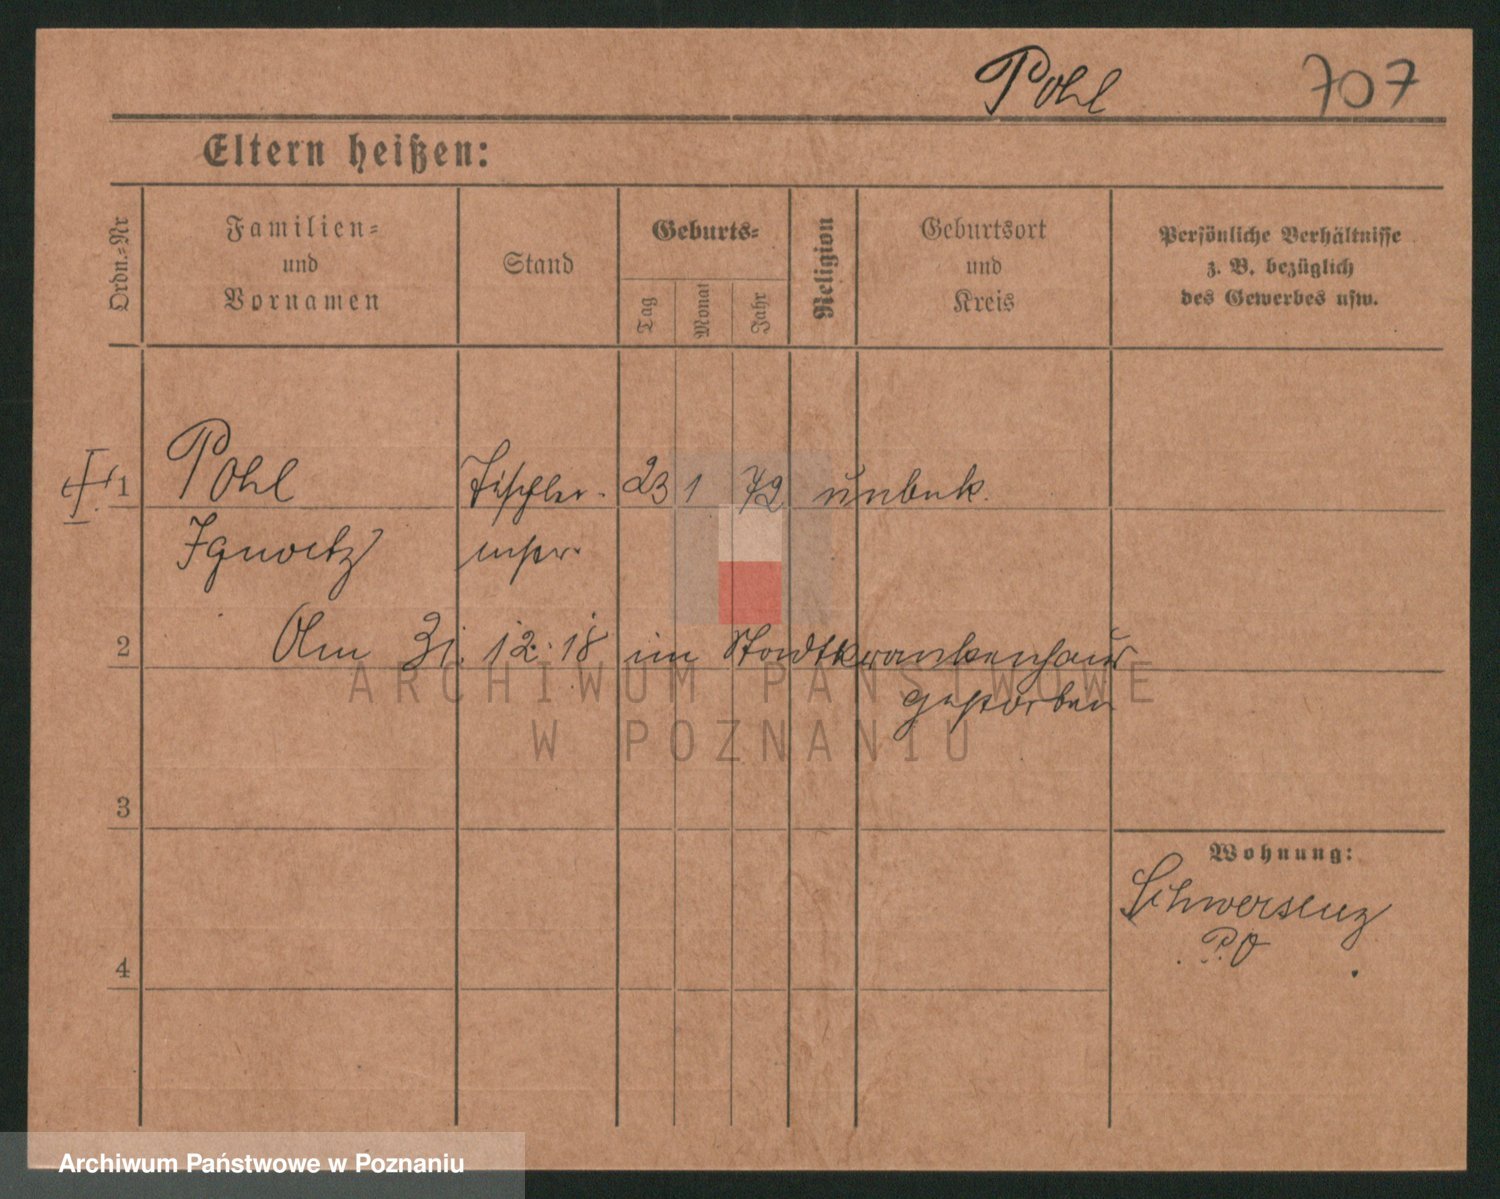 Pohl 707
Eltern heißen:
Ordn.-Nr
Familien-
und
Vornamen
Stand
Geburts-
Tag
Monat
Jahr
Religion
Geburtsort
und
Kreis
Persönliche Verhältnisse
z. B. bezüglich
des Gewerbes usw.
1 Pohl Tischler- 23 1 72 unbek.
Ignatz mstr.
2 Am 31. 12. 18 im Stadtkrankenhaus
gestorben
3
Wohnung:
Schwersenz
P. O
4
ARCHIWUM PAŃSTWOWE
W POZNANIU
Archiwum Państwowe w Poznaniu